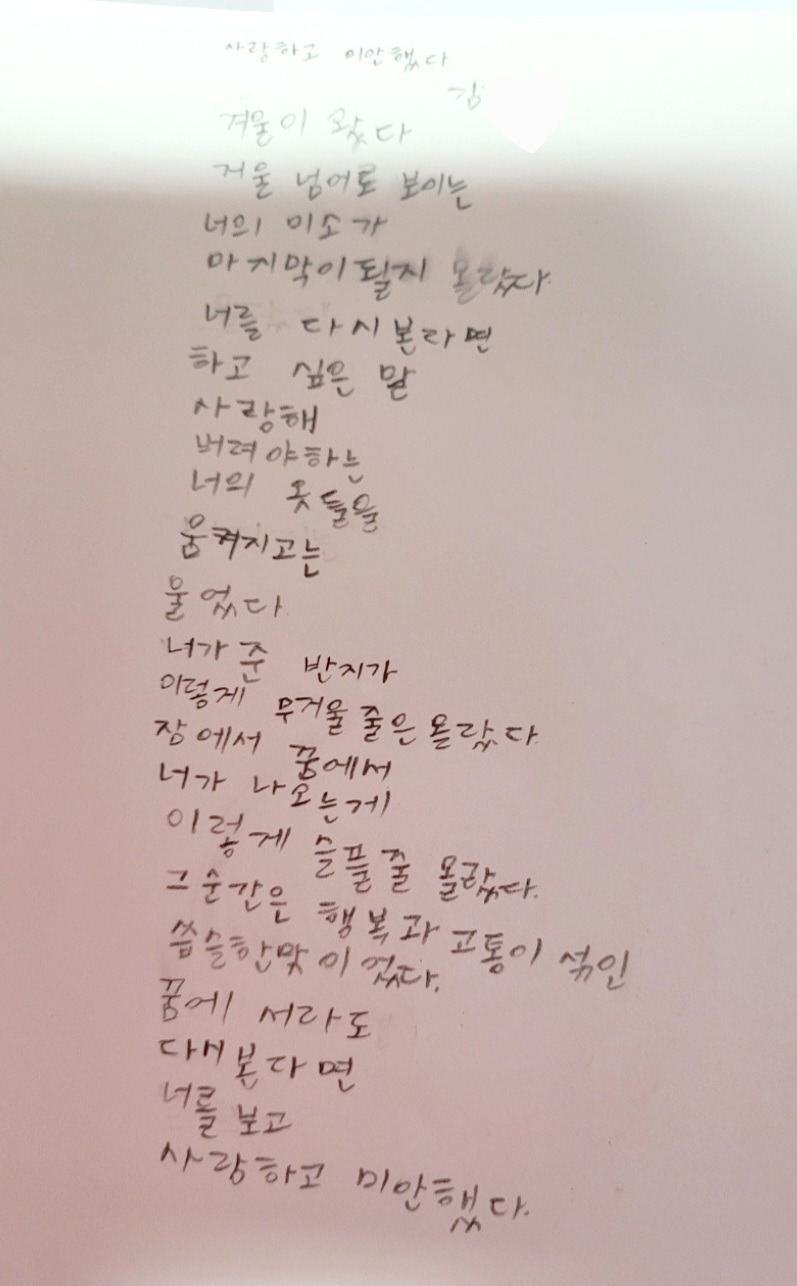 사랑하고 미안했다.
김
겨울이 왔다
거울 넘어로 보이는
너의 미소가
마지막이 될지 몰랐다.
너를 다시 본다면
하고 싶은 말
사랑해
버려야하는
너의 옷들을
움켜지고는
울었다
너가 준 반지가
이렇게 무거울 줄은 몰랐다.
잠에서 꿈에서
너가 나오는게
이렇게 슬플 줄 몰랐다.
그 순간은 행복과 고통이 섞인
씁슬한맛이었다.
꿈에서라도
다시 본다면
너를 보고
사랑하고 미안했다.